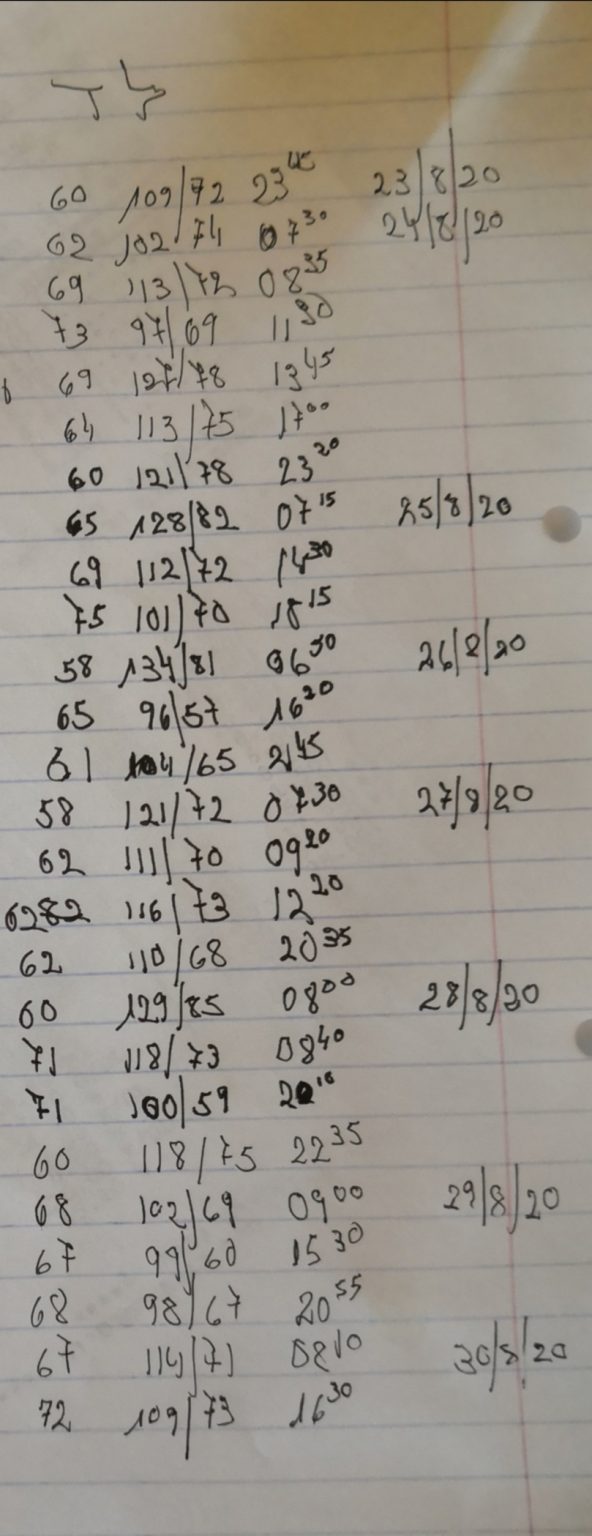 60 109/72 23 45 23/8/20
62 102/74 07 30 24/8/20
69 113/72 08 35
73 97/69 11 30
69 127/78 13 45
64 113/75 17 00
60 121/78 23 20
65 128/82 07 15 25/8/20
69 112/72 14 30
75 101/70 18 15
58 134/81 06 30 26/8/20
65 96/57 16 20
61 104/65 21 45
58 121/72 07 30 27/8/20
62 111/70 09 20
6282 116/73 12 20
62 110/68 20 35
60 129/85 08 00 28/8/20
71 118/73 08 40
71 100/59 20 10
60 118/75 22 35
68 102/69 09 00 29/8/20
67 99/60 15 30
68 98/67 20 55
67 114/71 08 10 30/8/20
72 109/73 16 30